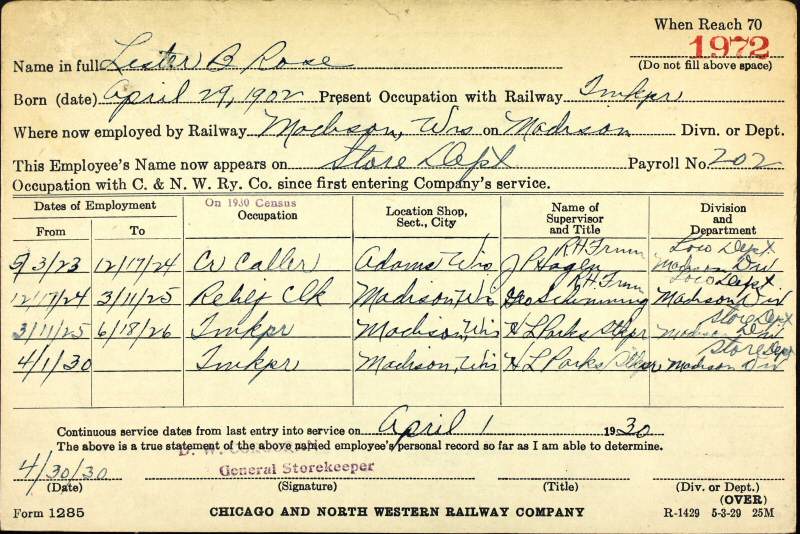 When Reach 70
1972
Name in full Lester B Rose (Do not fill above space)
Born (date) April 29, 1902 Present Occupation with Railway Tmkpr
Where now employed by Railway Madison, Wis on Madison Divn. or Dept.
This Employee's Name now appears on Store Dept Payroll No 202
Occupation with C. & N. W. Ry. Co. since first entering Company's service.
Dates of Employment On 1930 Census Occupation Location Shop, Sect., City Name of Supervisor and Title Division and Department
From To
3/23 12/17/24 Cr Caller Adams Wis J P Hagen RH Frmn Loco Dept Madison Div
12/17/24 3/11/25 Clk Madison, Wis RH Frmn Loco Dept Madison Div
3/11/25 6/18/26 Tmkpr Madison, Wis H L Parks Stkpr Store Dept Madison Div
4/1/30 Tmkpr Madison, Wis H L Parks Stkpr Store Dept Madison Div
Continuous service dates from last entry into service on April 1 1930
The above is a true statement of the above named employee's personal record so far as I am able to determine.
4/30/30 D. W. CORCORAN
General Storekeeper
(Date) (Signature) (Title) (Div. or Dept.)
(OVER)
Form 1285 CHICAGO AND NORTH WESTERN RAILWAY COMPANY R-1429 5-3-29 25M